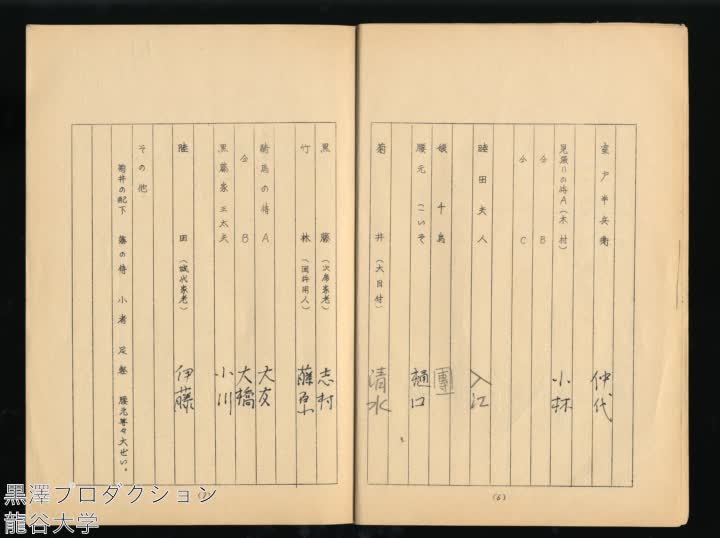 室戸半兵衛 仲代
見張りの侍A(木村) 小林
仝 B
仝 C
睦田夫人 入江
娘 千鳥 團
腰元 こいそ 樋口
菊 井(大目付) 清水
(6)
黒 藤(次席家老) 志村
竹 林(國許用人)
騎馬の侍A 大友
仝 B 大橋
黒藤家三太夫 小川
睦 田(城代家老) 伊藤
その他
菊井の配下 藩の侍 小者 足軽 腰元等々大ぜい。
(7)
黒澤プロダクション
龍谷大学